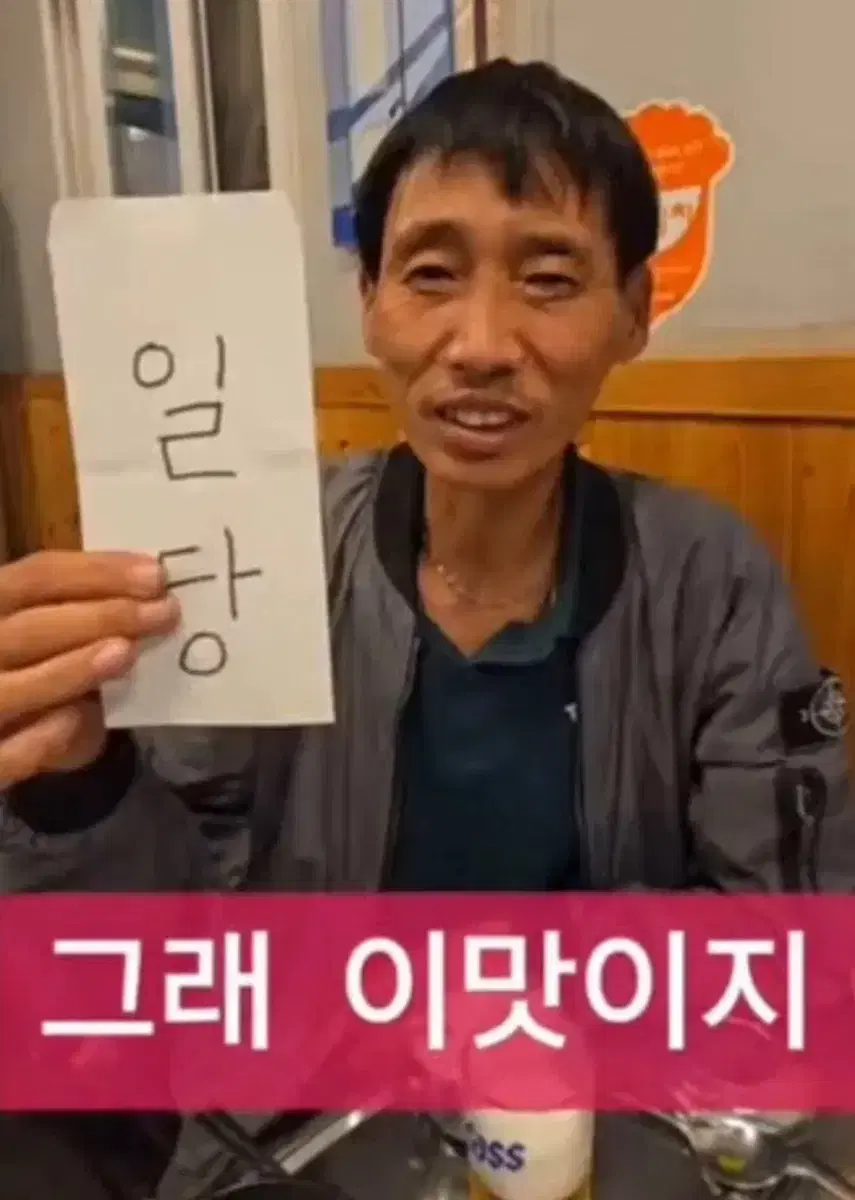 일
당
그래 이맛이지
oss